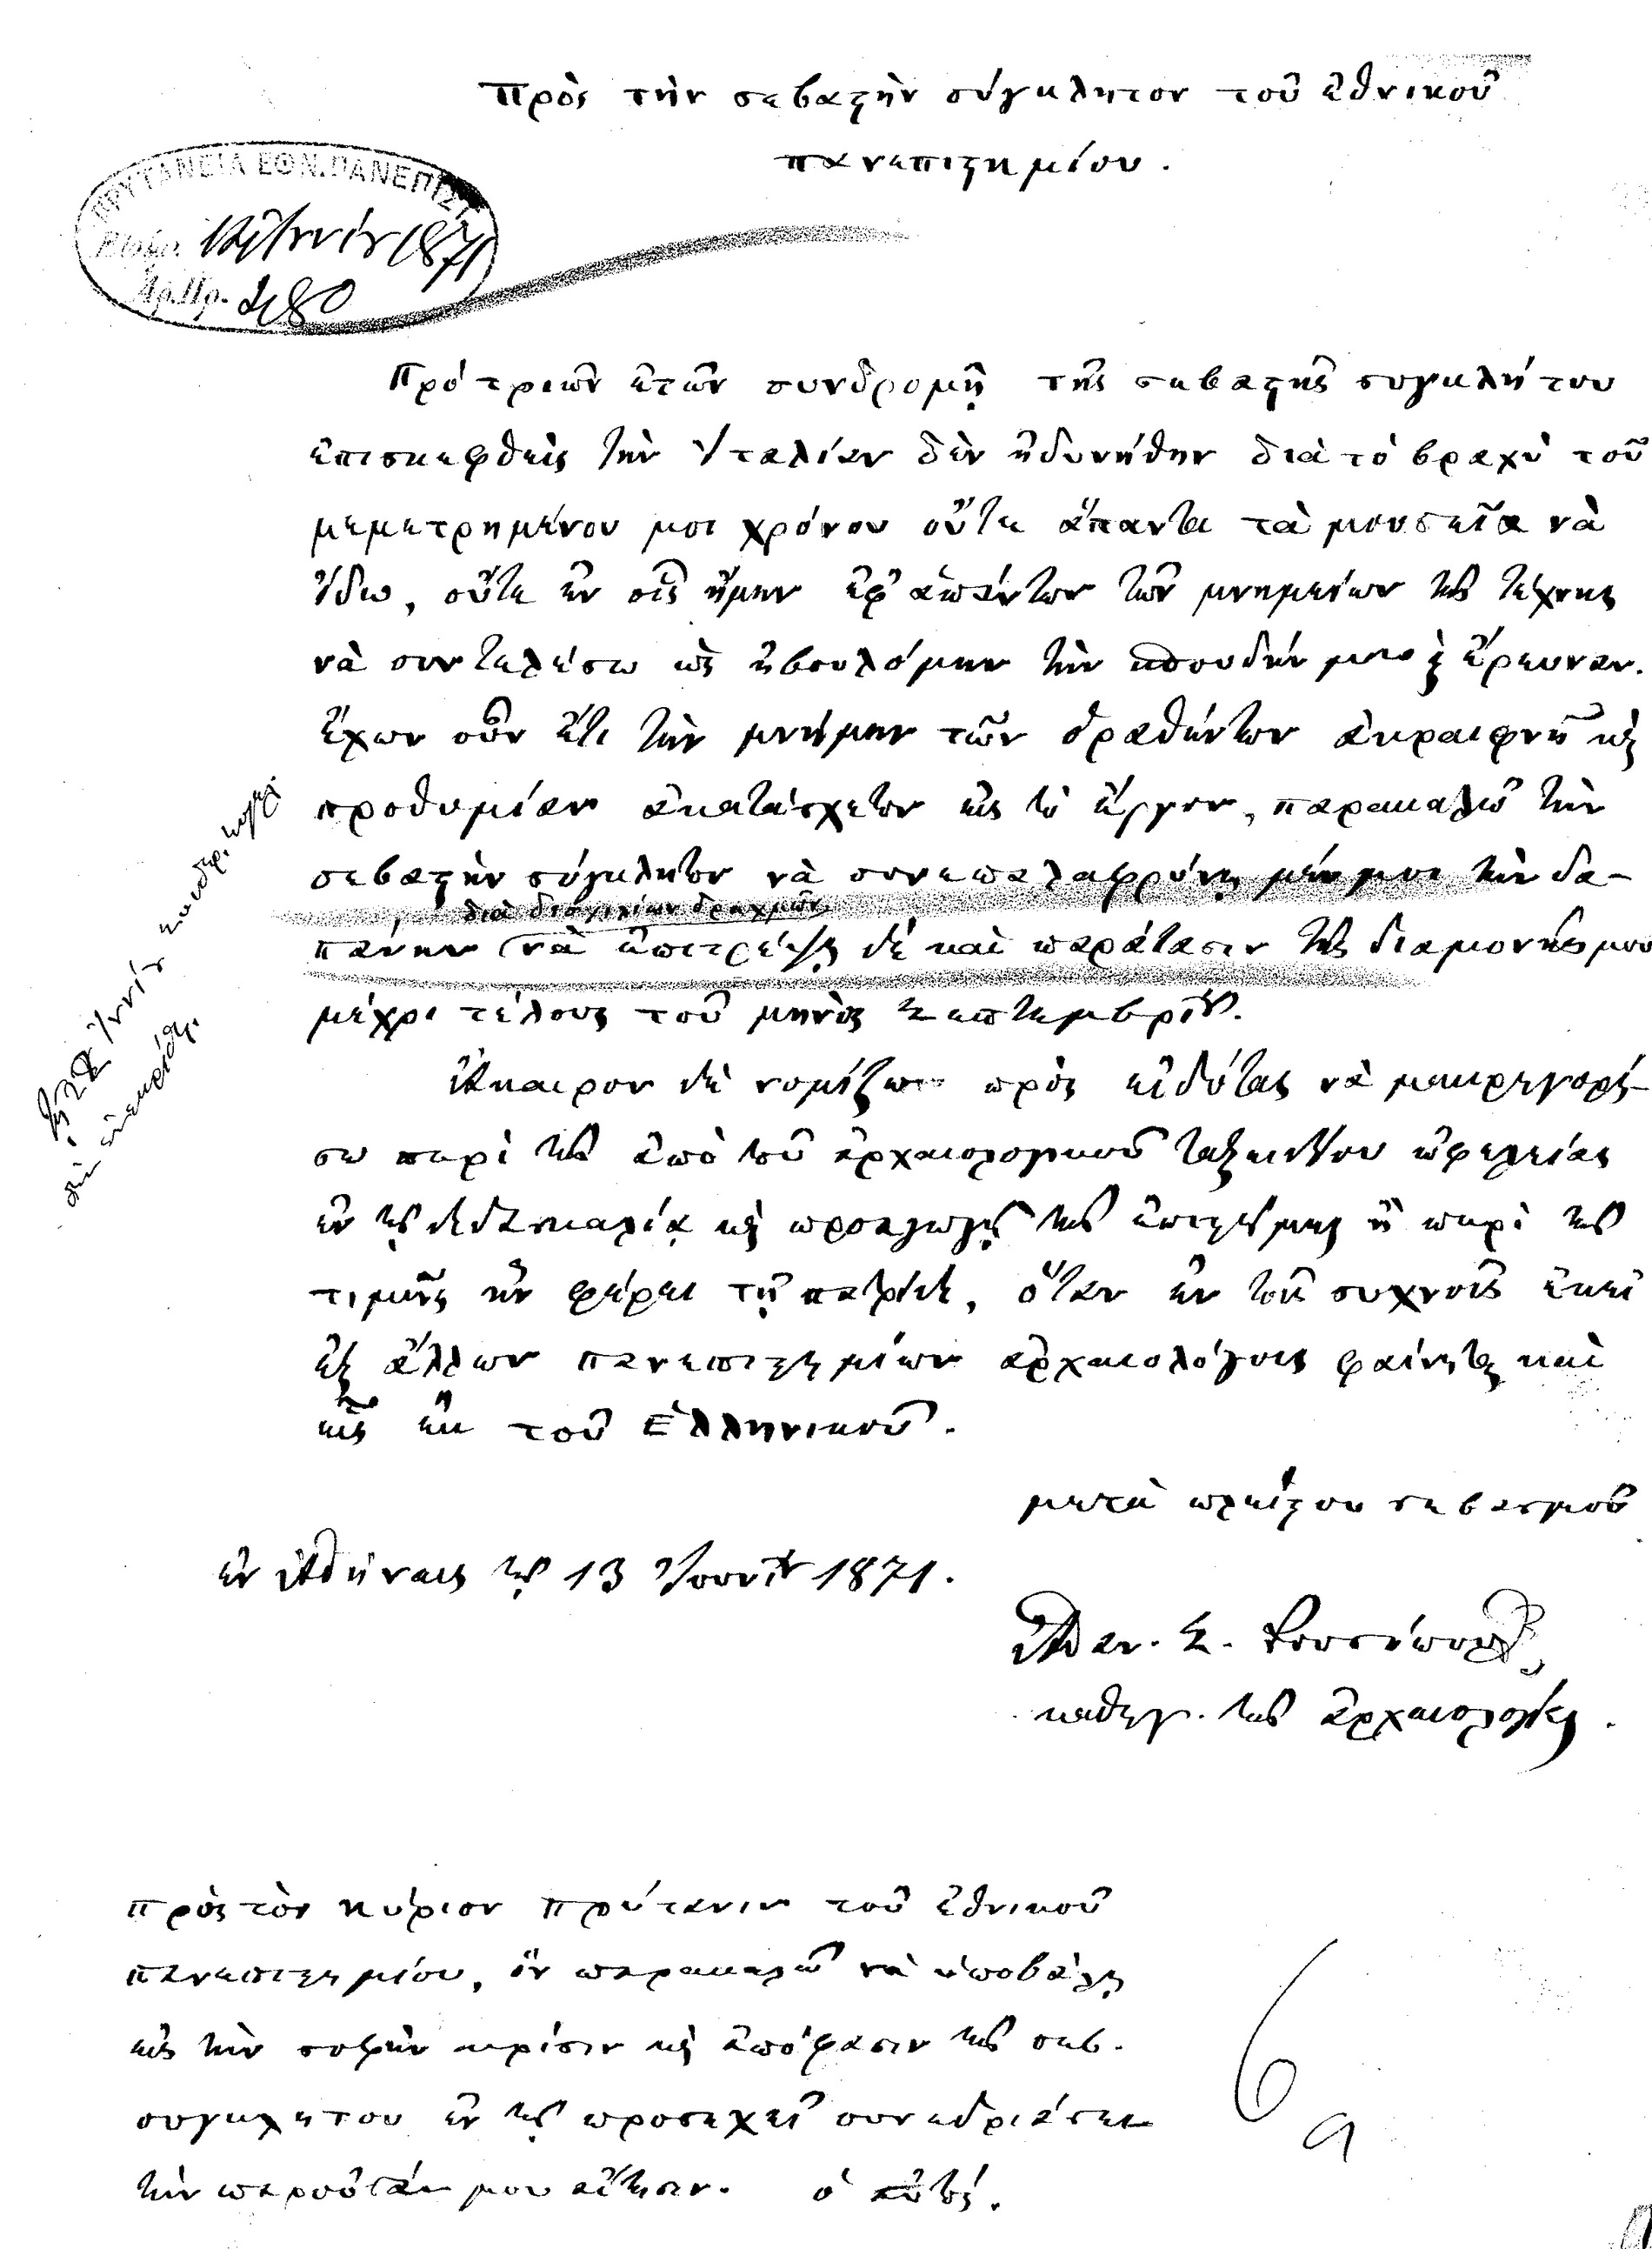 Πρὸς τὴν σεβαστὴν σύγκλητον τοῦ ἐθνικοῦ
πανεπιστημίου.
ΠΡΥΤΑΝΕΙΑ ΕΘΝ. ΠΑΝΕΠΙΣΤ
Ἰουνίου 1871
Ἀρ. Πρ.
Πρὸ τριῶν ἐτῶν συνδρομῇ τῆς σεβαστῆς συγκλήτου
ἐπισκεφθεὶς τὴν Ἰταλίαν δὲν ἠδυνήθην διὰ τὸ βραχὺ τοῦ
μεμετρημένου μοι χρόνου οὔτε ἅπαντα τὰ μουσεῖα νὰ
ἴδω, οὔτε ἐν οἷς ἤμην ἐφ' ἁπάντων τῶν μνημείων τῆς τέχνης
νὰ συντελέσω ὡς ἠβουλόμην τὴν σπουδήν μου κ ἔρευναν.
Ἔχων οὖν ἔτι τὴν μνήμην τῶν ὁραθέντων ἀκραιφνῆ κὶ
προθυμίαν ἀκατάσχετον εἰς τὸ ἔργον, παρακαλῶ τὴν
σεβαστὴν σύγκλητον νὰ συνεπελαφρύνῃ μέν μοι τὴν δα-
διὰ δισχιλίων δραχμῶν,
πάνην νὰ ἐπιτρέψῃ δὲ καὶ παράτασιν τῆς διαμονῆς μου
μέχρι τέλους τοῦ μηνὸς Σεπτεμβρίου.
Ἄκαιρον δὲ νομίζω πρὸς εἰδότας νὰ μακρηγορή-
σω περὶ τῆς ἀπὸ τοῦ ἀρχαιολογικοῦ ταξειδίου ὠφελείας
ἐν τῇ διδασκαλίᾳ κὶ προαγωγῇ τῆς ἐπιστήμης ἢ περὶ τῆς
τιμῆς ἣν φέρει τῇ πατρίδι, ὅταν ἐν τοῖς συχνοῖς ἐκεῖ
ἐξ ἄλλων πανεπιστημίων ἀρχαιολόγοις φαίνηται καὶ
εἷς ἐκ τοῦ Ἑλληνικοῦ.
μετὰ πλείστου σεβασμοῦ
ἐν Ἀθήναις τῇ 13 Ἰουνίου 1871.
Ἀθαν. Σ. Ῥουσόπουλος
καθηγ. τῆς ἀρχαιολογίας.
πρὸς τὸν κύριον πρύτανιν τοῦ ἐθνικοῦ
πανεπιστημίου, ὃν παρακαλῶ νὰ ὑποβάλῃ
εἰς τὴν σοφὴν κρίσιν κὶ ἀπόφασιν τῆς σεβ.
συγκλήτου ἐν τῇ προσεχεῖ συνεδριάσει
τὴν παροῦσάν μου αἴτησιν. ὁ αὐτός.